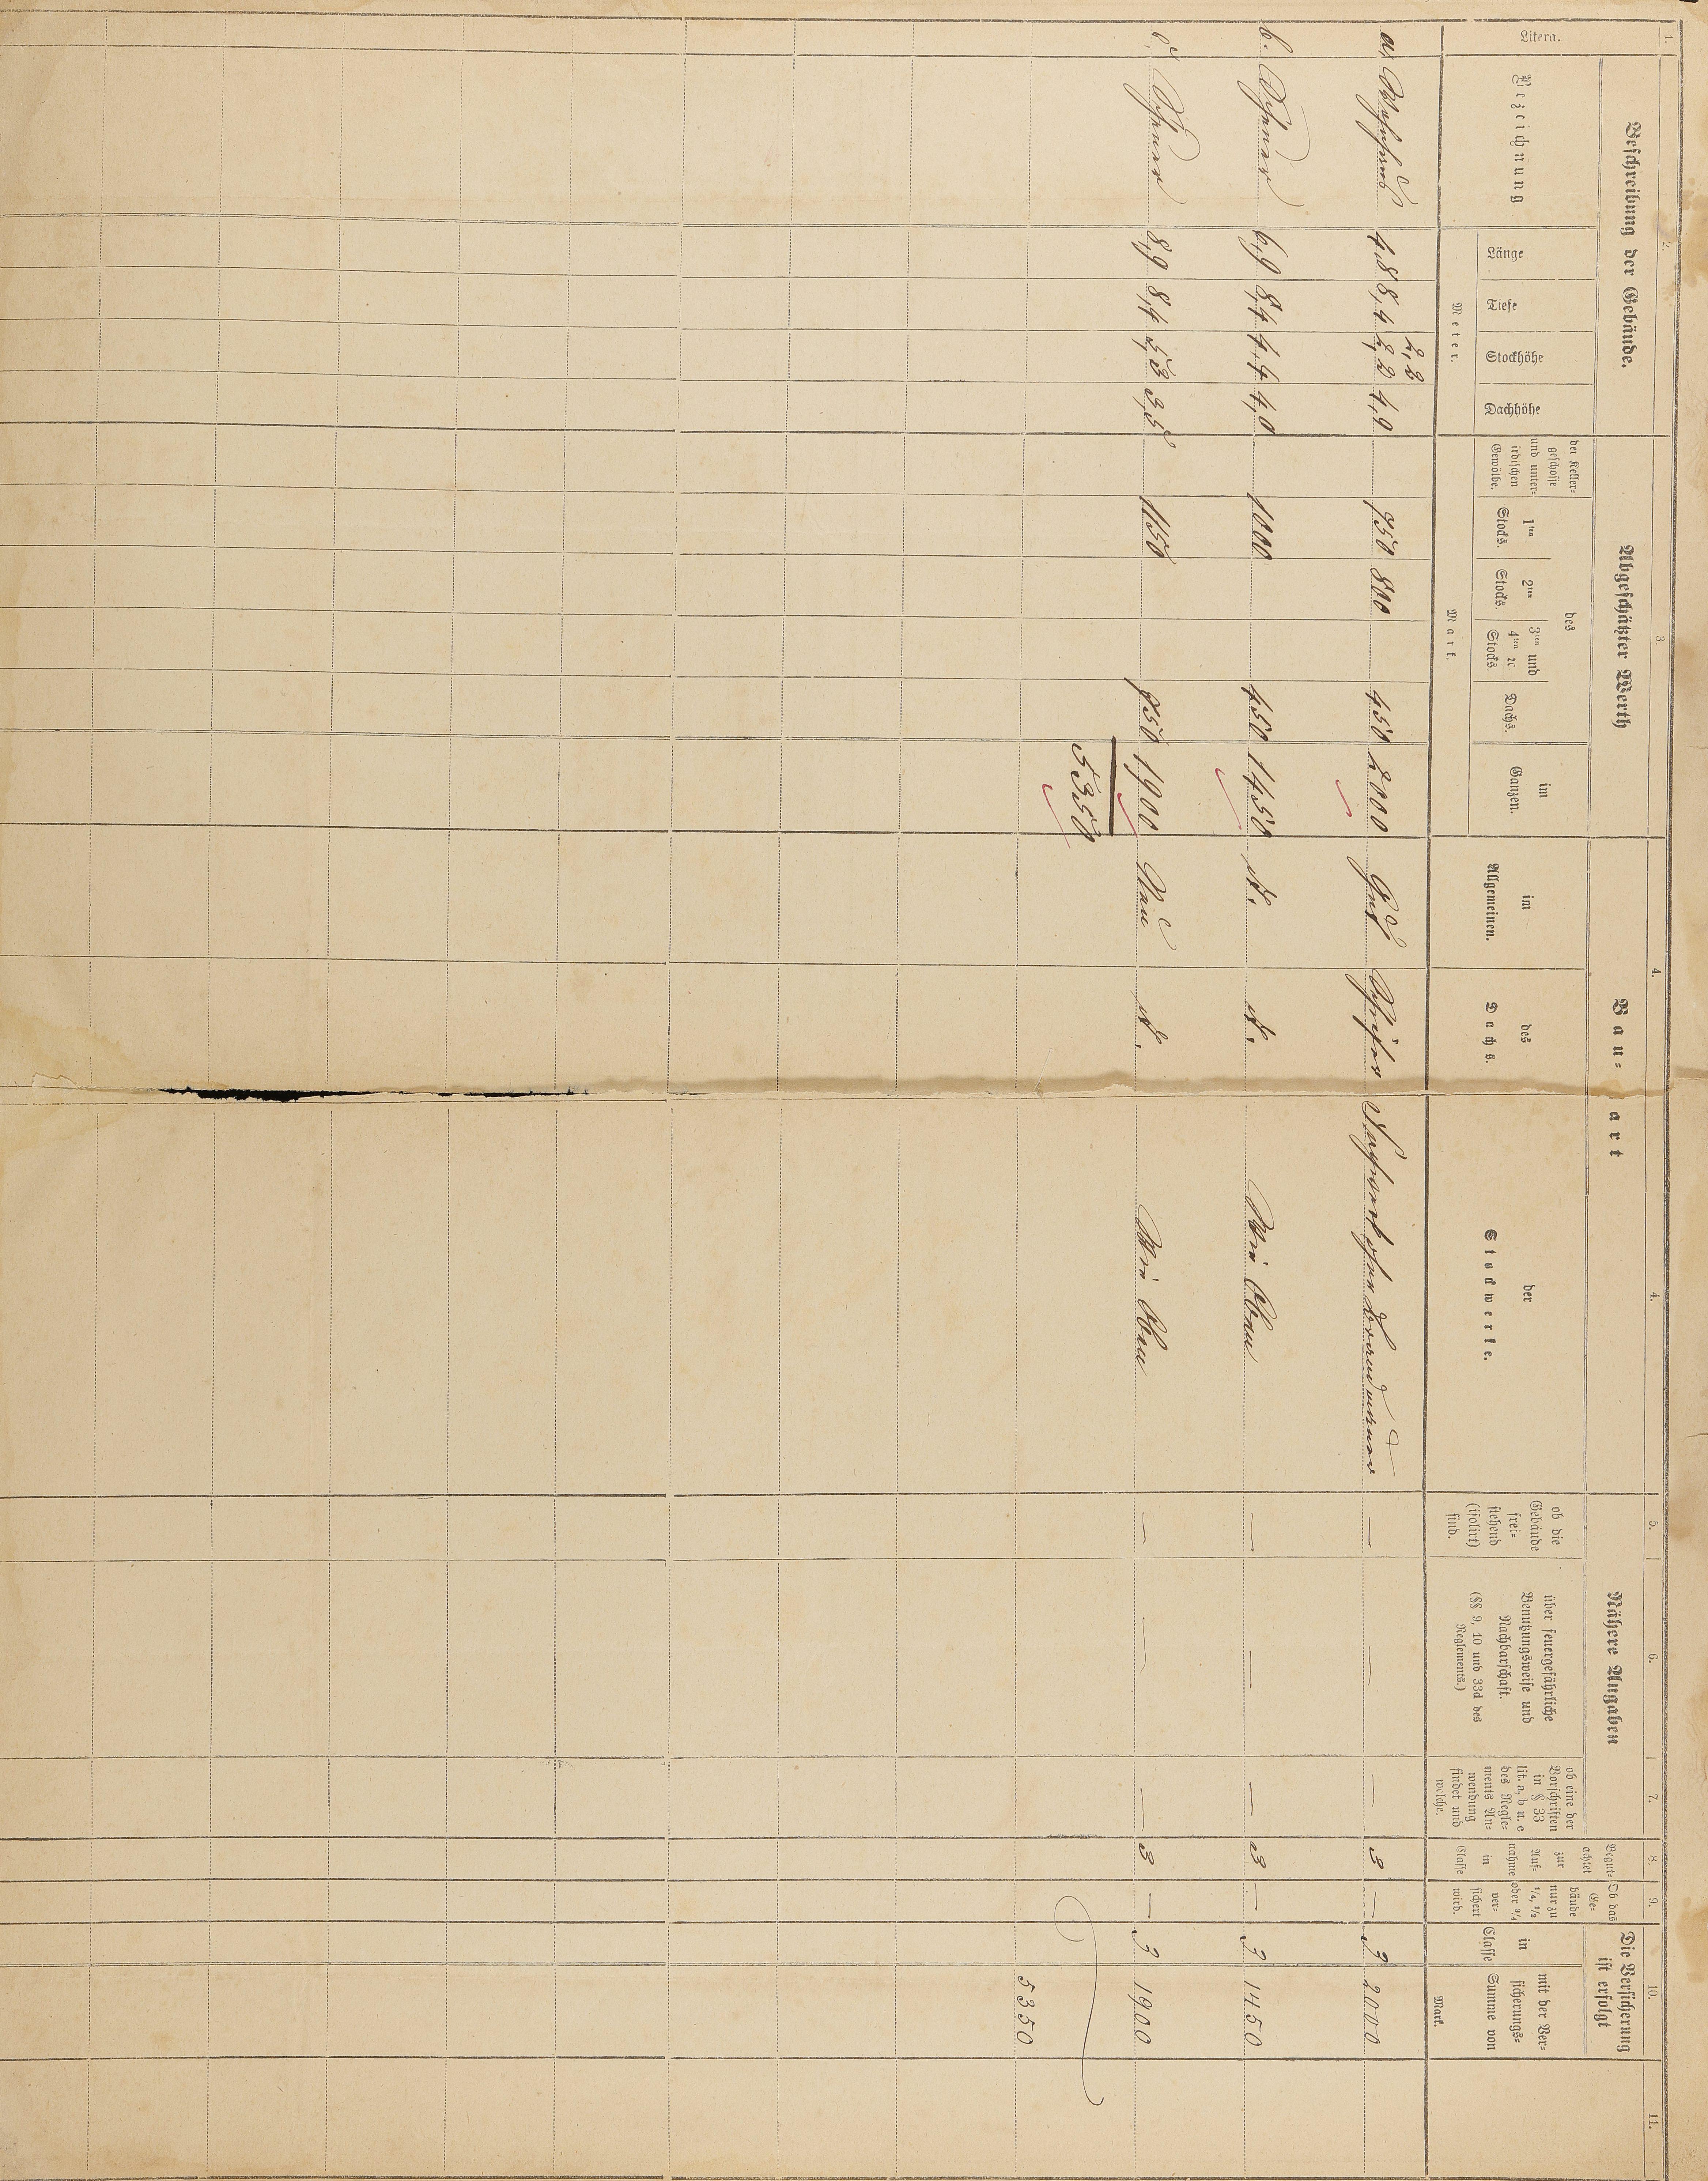 1. 2. 3. 4. 4. 5. 6. 7. 8. 9. 10. 11.
Beschreibung der Gebäude.
Abgeschätzter Werth
Bau-art
Nähere Angaben
Die Versicherung
ist erfolgt
Litera.
Bezeichnung
Länge
Tiefe
Stockhöhe
Dachhöhe
Meter.
der Keller-
geschosse
und unter-
irdischen
Gewölbe.
des
1ten
Stocks.
2ten
Stocks.
3ten und
4ten ꝛc
Stocks
Dachs.
im
Ganzen.
Mark.
im
Allgemeinen.
des
Dachs.
der
Stockwerke.
ob die
Gebäude
frei-
stehend
(isolirt)
sind.
über feuergefährliche
Benutzungsweise und
Nachbarschaft.
(§§ 9, 10 und 33d des
Reglements.)
ob eine der
Vorschriften
in § 33
lit. a, b u. c
des Regle-
ments An-
wendung
findet und
welche.
Begut-
achtet
zur
Auf-
nahme
in
Classe
Ob das
Ge-
bäude
nur zu
1/4, 1/2
oder 3/4
ver-
sichert
wird.
in
Classe
mit der Ver-
sicherungs-
Summe von
Mark.
2,2
a, Wohnhaus 4,8 8,4 2,2 4,0 750 800 450 2000 Gut Ziegel Fachwerk ohne Brandmauer — — — 3 — 3 2000
b. Scheuer 6,9 8,4 4,4 4,0 1000 450 1450 d. d. Wie Oben — — — 3 — 3 1450
c, Scheuer 8,9 8,4 5,3 3,5 1150 750 1900 Neu d. Wie Oben — — — 3 — 3 1900
5350 5350